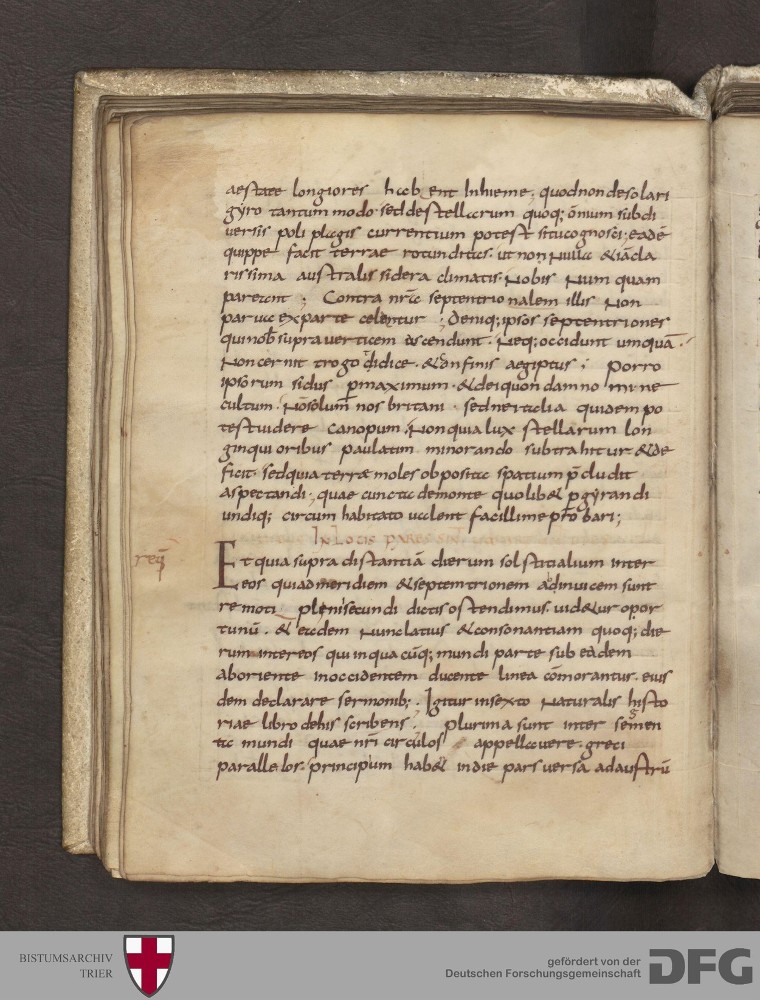 aestate longiores habent Inhieme, quodnondesolari
gyro tantummodo sed destellarum quoq; omnium subdi
versis poli plagis currentium potest situcognosci; eadē
quippe facit terrae rotunditas. ut non &iācla
rissima australis sidera climatis Nobis Numquam
pareant; Contra nr̄a septentrionalem illis Non
parua exparte celentur; deniq; ipsos septentriones
quinob̄ supra verticem ascendunt. Neq; occidunt umquā.
Noncernit trogodidice. & confinis aegiptus; Porro
ipsorum sidus p̄maximum. &deiquondam nomine
cultum. Nōsolum nos britani. sednecitalia quidem po
testuidere canopum. Nonquia lux stellarum lon
ginquioribus paulatim minorando subtrahitur &de
ficit. sedquia terrae moles obposita spatium p̄cludit
aspectandi, quae cuncta demonte quolib& pgyrandi
undiq; circum habitato ualent facillime probari;
In Locis pares
req̄
Et quia supra distantiā dierum solstitialium inter
eos quiadmeridiem &septemtrionem adinuicem sunt
remoti plenisecundi dictis ostendimus. uid&ur opor
tunū. & eadem Nunclatius &consonantiam quoq; die
rum intereos quiinquacūq; mundi parte sub eādem
aboriente inoccidentem ducente linea cōmorantur. eius
dem declarare sermonib;. Igitur insexto Naturalis histo
riae libro dehis scribens. plurima sunt inter segmen
ta mundi quae nr̄i circulos appellauere. greci
parallelos. principium hab& indie pars versa adaustrū
BISTUMSARCHIV
TRIER
gefördert von der
Deutschen Forschungsgemeinschaft
DFG